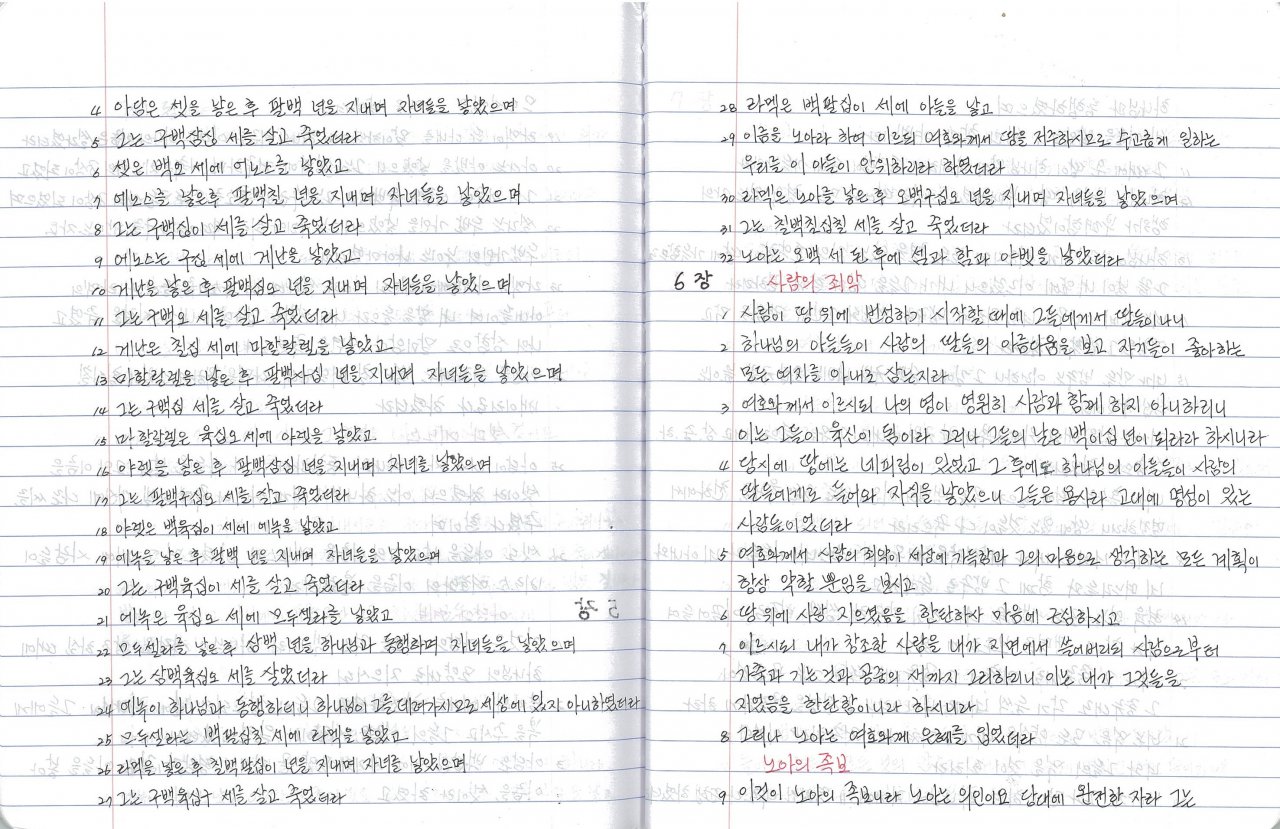 4 아담은 셋을 낳은 후 팔백 년을 지내며 자녀들을 낳았으며
5 그는 구백삼십 세를 살고 죽었더라
6 셋은 백오 세에 에노스를 낳았고
7 에노스를 낳은후 팔백칠 년을 지내며 자녀들을 낳았으며
8 그는 구백십이 세를 살고 죽었더라
9 에노스는 구십 세에 게난을 낳았고
10 게난을 낳은 후 팔백십오 년을 지내며 자녀들을 낳았으며
11 그는 구백오 세를 살고 죽었더라
12 게난은 칠십 세에 마할랄렐을 낳았고
13 마할랄렐을 낳은 후 팔백사십 년을 지내며 자녀들을 낳았으며
14 그는 구백십 세를 살고 죽었더라
15 마할랄렐은 육십오 세에 야렛을 낳았고
16 야렛을 낳은 후 팔백삼십 년을 지내며 자녀를 낳았으며
17 그는 팔백구십오 세를 살고 죽었더라
18 야렛은 백육십이 세에 에녹을 낳았고
19 에녹을 낳은 후 팔백 년을 지내며 자녀들을 낳았으며
20 그는 구백육십이 세를 살고 죽었더라
21 에녹은 육십오 세에 므두셀라를 낳았고
22 므두셀라를 낳은 후 삼백 년을 하나님과 동행하며 자녀들을 낳았으며
23 그는 삼백육십오 세를 살았더라
24 에녹이 하나님과 동행하더니 하나님이 그를 데려가시므로 세상에 있지 아니하였더라
25 므두셀라는 백팔십칠 세에 라멕을 낳았고
26 라멕을 낳은 후 칠백팔십이 년을 지내며 자녀를 낳았으며
27 그는 구백육십구 세를 살고 죽었더라
28 라멕은 백팔십이 세에 아들을 낳고
29 이름을 노아라 하여 이르되 여호와께서 땅을 저주하시므로 수고롭게 일하는
우리를 이 아들이 안위하리라 하였더라
30 라멕은 노아를 낳은 후 오백구십오 년을 지내며 자녀들을 낳았으며
31 그는 칠백칠십칠 세를 살고 죽었더라
32 노아는 오백 세 된 후에 셈과 함과 야벳을 낳았더라
6장 사람의 죄악
1 사람이 땅 위에 번성하기 시작할 때에 그들에게서 딸들이나니
2 하나님의 아들들이 사람의 딸들의 아름다움을 보고 자기들이 좋아하는
모든 여자를 아내로 삼는지라
3 여호와께서 이르시되 나의 영이 영원히 사람과 함께 하지 아니하리니
이는 그들이 육신이 됨이라 그러나 그들의 날은 백이십 년이 되리라 하시니라
4 당시에 땅에는 네피림이 있었고 그 후에도 하나님의 아들들이 사람의
딸들에게로 들어와 자식을 낳았으니 그들은 용사라 고대에 명성이 있는
사람들이었더라
5 여호와께서 사람의 죄악이 세상에 가득함과 그의 마음으로 생각하는 모든 계획이
항상 악할 뿐임을 보시고
6 땅 위에 사람 지으셨음을 한탄하사 마음에 근심하시고
7 이르시되 내가 창조한 사람을 내가 지면에서 쓸어버리되 사람으로부터
가축과 기는 것과 공중의 새까지 그리하리니 이는 내가 그것들을
지었음을 한탄함이니라 하시니라
8 그러나 노아는 여호와께 은혜를 입었더라
노아의 족보
9 이것이 노아의 족보니라 노아는 의인이요 당대에 완전한 자라 그는